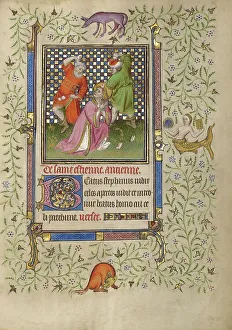 De saint estienne. antienne.
Beatus stephanus iudit
celos apertos uidit et intro
iuit beatus homo cui ce
li patebant. verset.